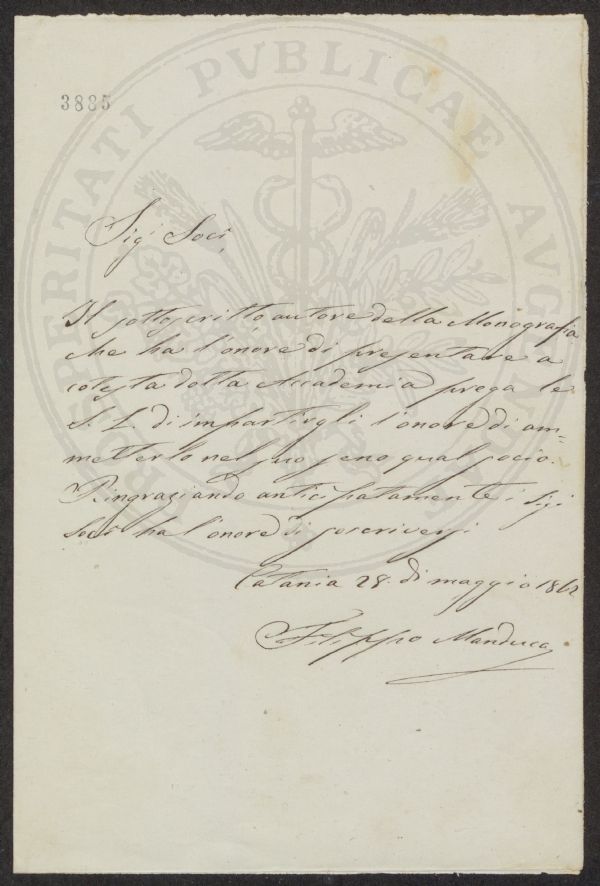 PROSPERITATI PVBLICAE AVGENDAE
3885
Sigi Soci,
Il sottoscritto autore della Monografia
che ha l'onore di presentare a
cotesta dotta Accademia prega le
S. L. di impartirgli l'onore di am=
metterlo nel suo seno qual socio.
Ringraziando anticipatamente i sigi
Soci ha l'onore di soscriversi
Catania 28. di maggio 1862
Filippo Manduca